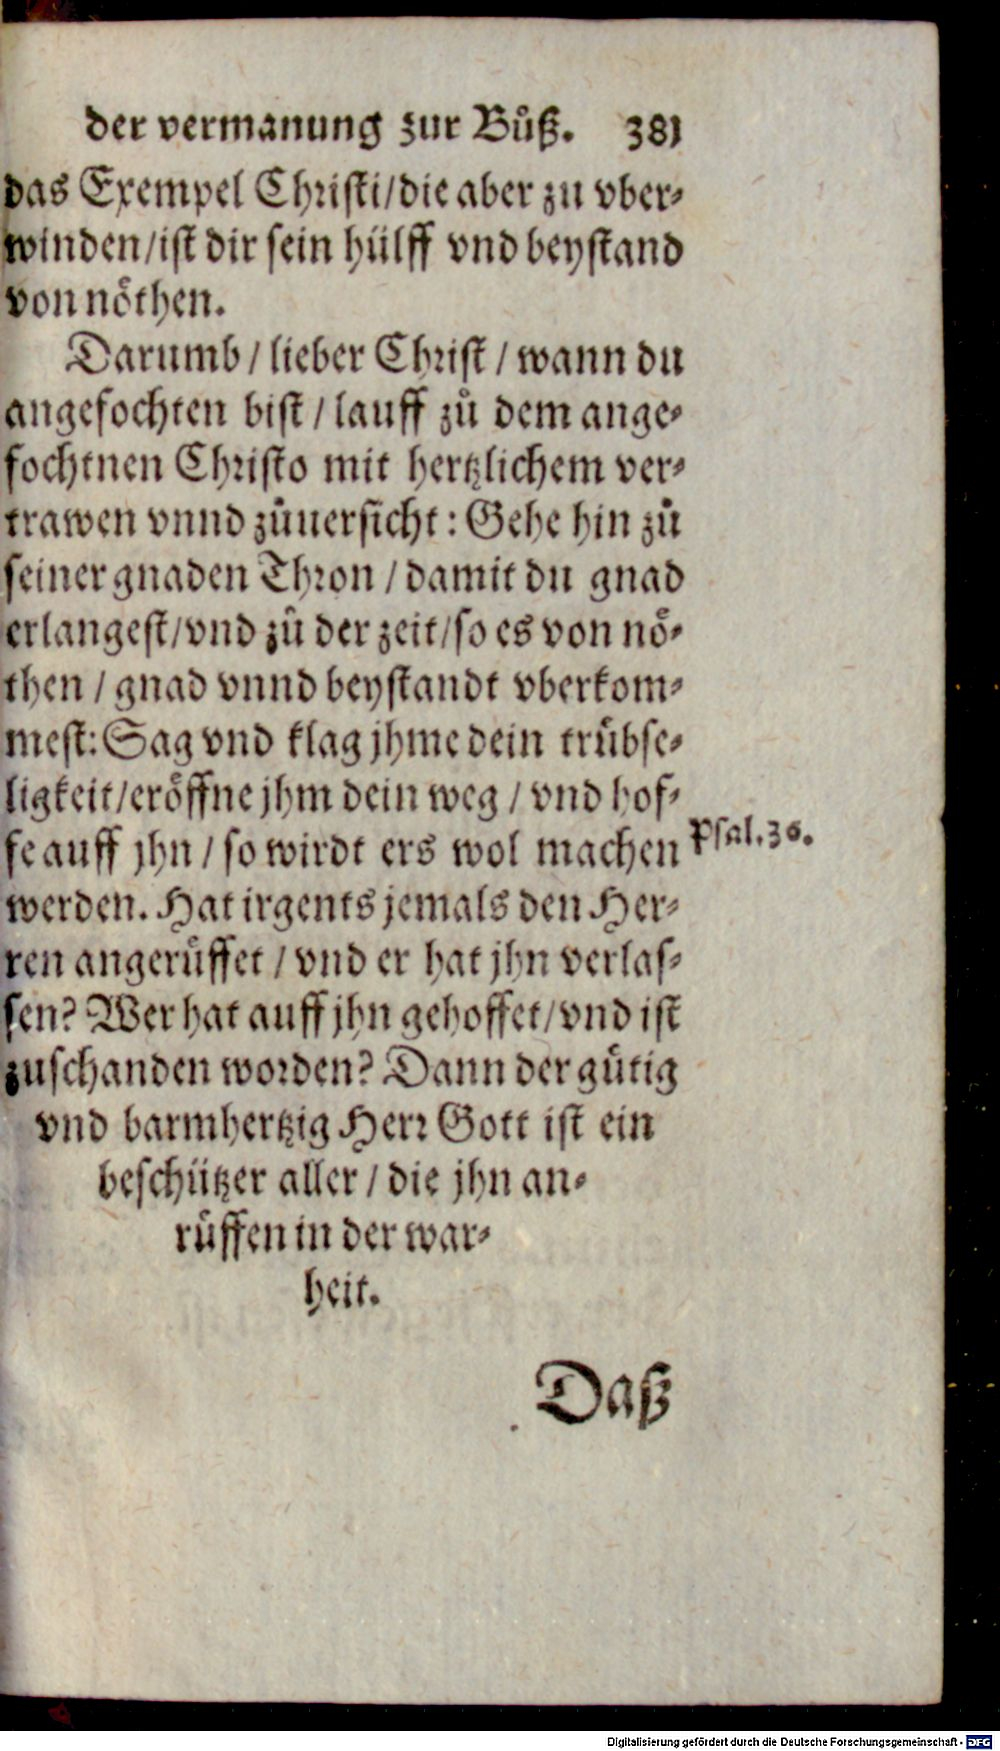 der vermanung zur Bůß. 381
das Exempel Christi/die aber zu vber-
winden/ist dir sein hülff vnd beystand
von nöthen.
Darumb / lieber Christ / wann du
angefochten bist / lauff zů dem ange-
fochtnen Christo mit hertzlichem ver-
trawen vnnd zůuersicht : Gehe hin zů
seiner gnaden Thron / damit du gnad
erlangest/vnd zů der zeit/so es von nö-
then / gnad vnnd beystandt vberkom-
mest: Sag vnd klag jhme dein trübse-
ligkeit/eröffne jhm dein weg / vnd hof-
fe auff jhn / so wirdt ers wol machen
Psal.36.
werden. Hat irgents jemals den Her-
ren angerüffet / vnd er hat jhn verlas-
sen? Wer hat auff jhn gehoffet/vnd ist
zuschanden worden? Dann der gütig
vnd barmhertzig Herr Gott ist ein
beschützer aller / die jhn an-
rüffen in der war-
heit.
Daß
Digitalisierung gefördert durch die Deutsche Forschungsgemeinschaft - DFG